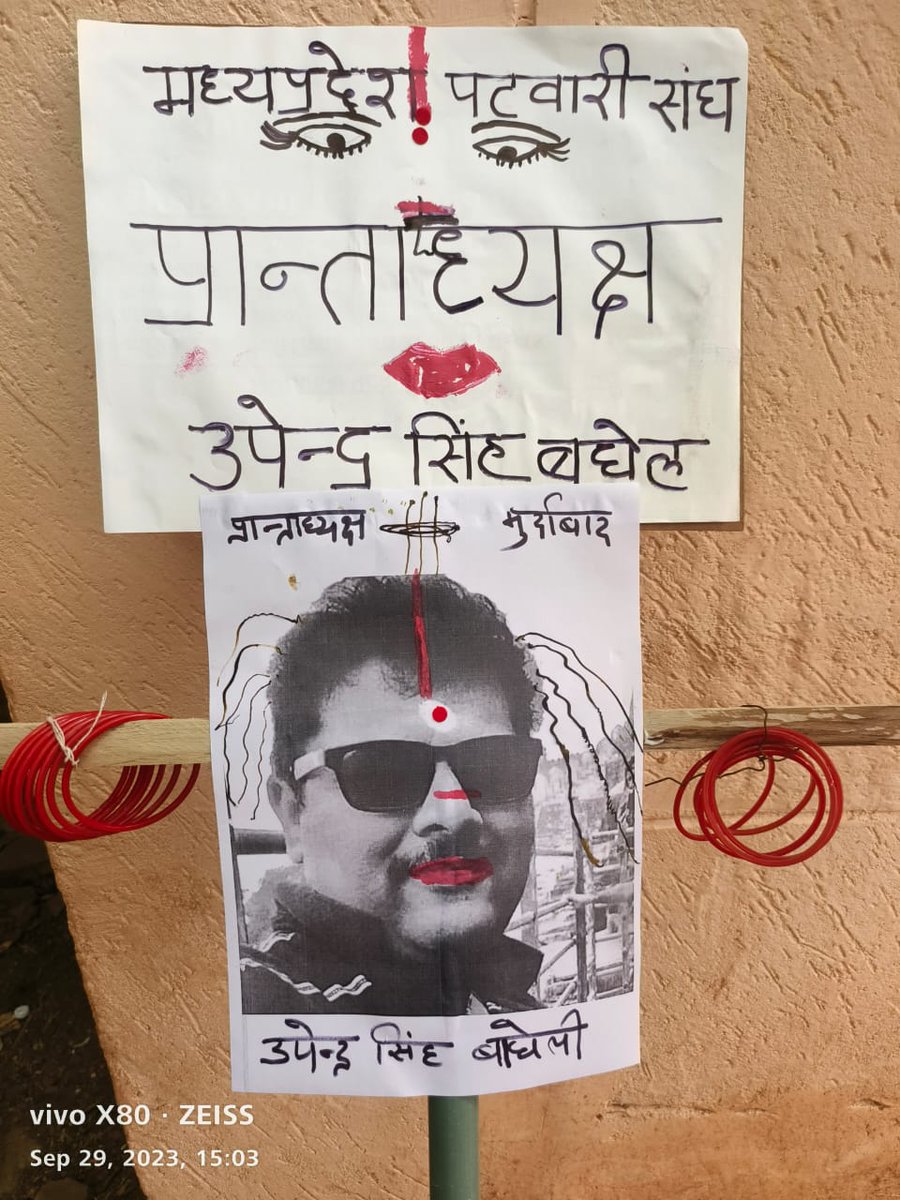 मध्यप्रदेश पटवारी संघ
प्रान्ताध्यक्ष
उपेन्द्र सिंह बघेल
प्रान्ताध्यक्ष मुर्दाबाद
उपेन्द्र सिंह बाघेली
vivo X80 · ZEISS
Sep 29, 2023, 15:03